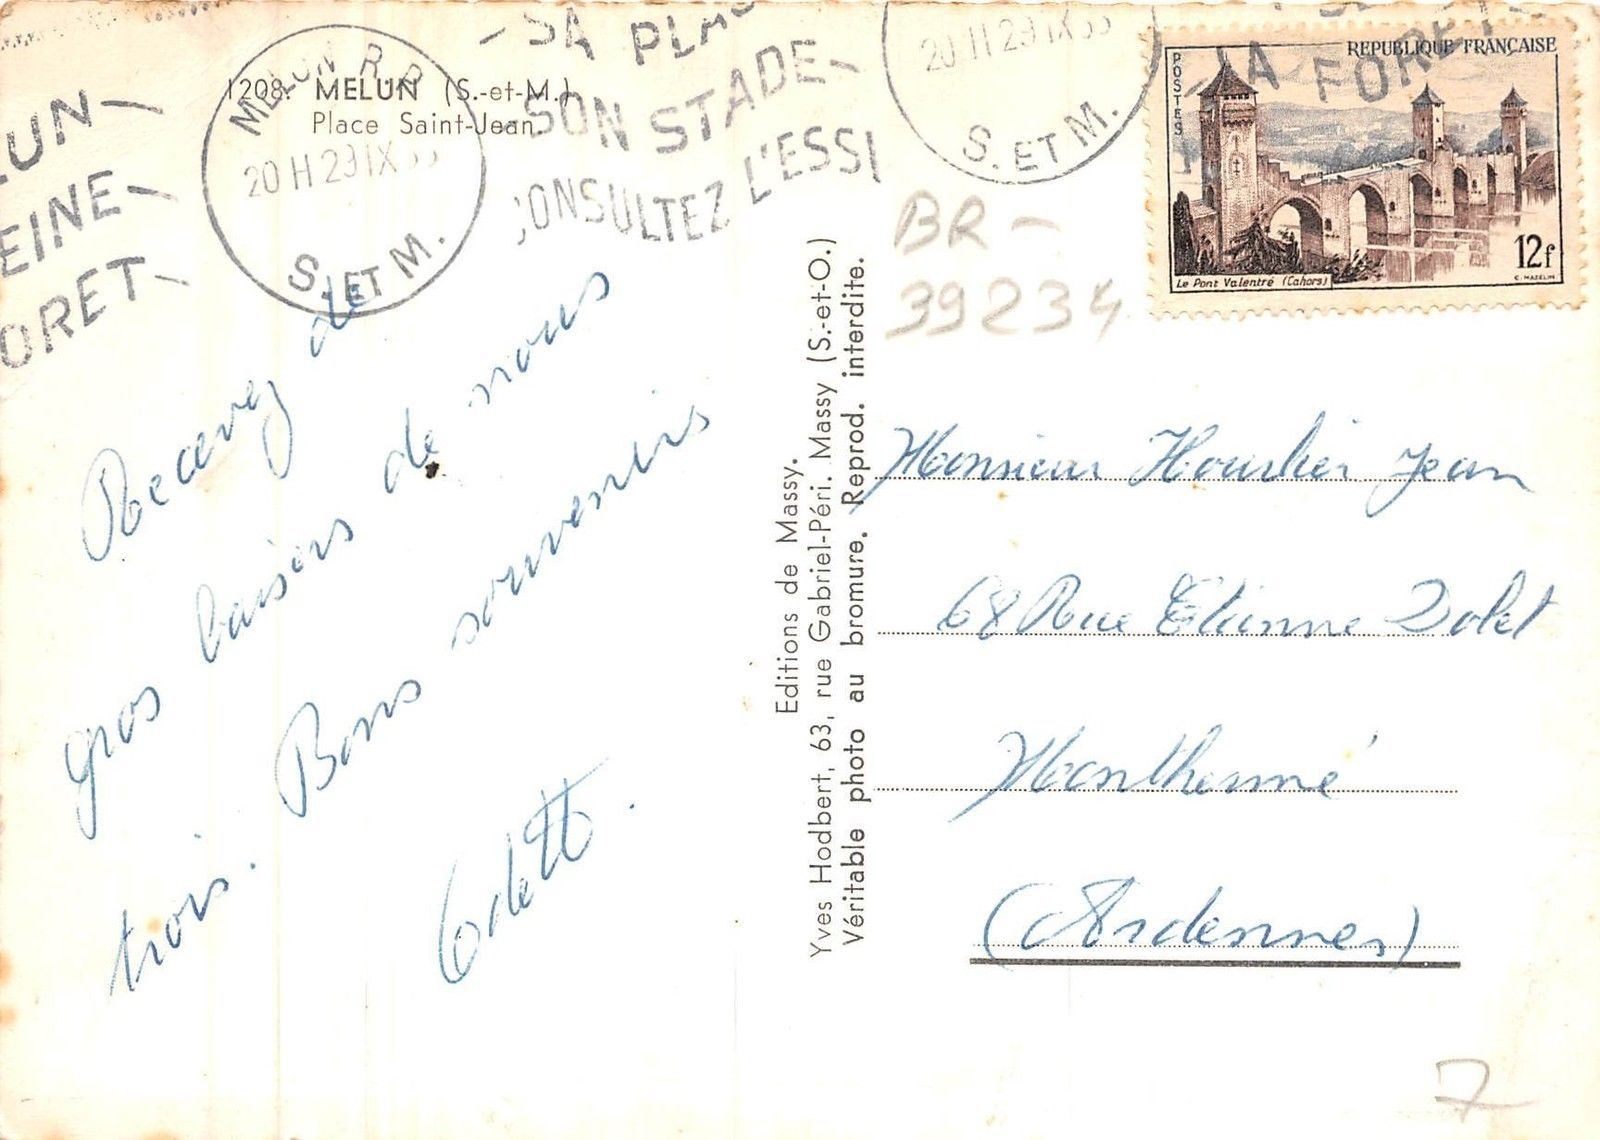 1208. MELUN (S.-et-M.)
Place Saint-Jean.
MELUN R.P.
20 H 29 IX
S. ET M.
LUN
EINE
ORET
SA PLAG
SON STADE
CONSULTEZ L'ESSI
20 H 29 IX
S. ET M.
LA FORET
REPUBLIQUE FRANÇAISE
POSTES
12f
Le Pont Valentré (Cahors)
C. MAZELIN
BR-
39234
Recevez de
gros baisers de nous
trois. Bons souvenirs
Odette.
Editions de Massy.
Yves Hodbert, 63, rue Gabriel-Péri. Massy (S.-et-O.)
Véritable photo au bromure. Reprod. interdite.
Monsieur Hourlier Jean
68 Rue Etienne Dolet
Monthermé
(Ardennes)
7